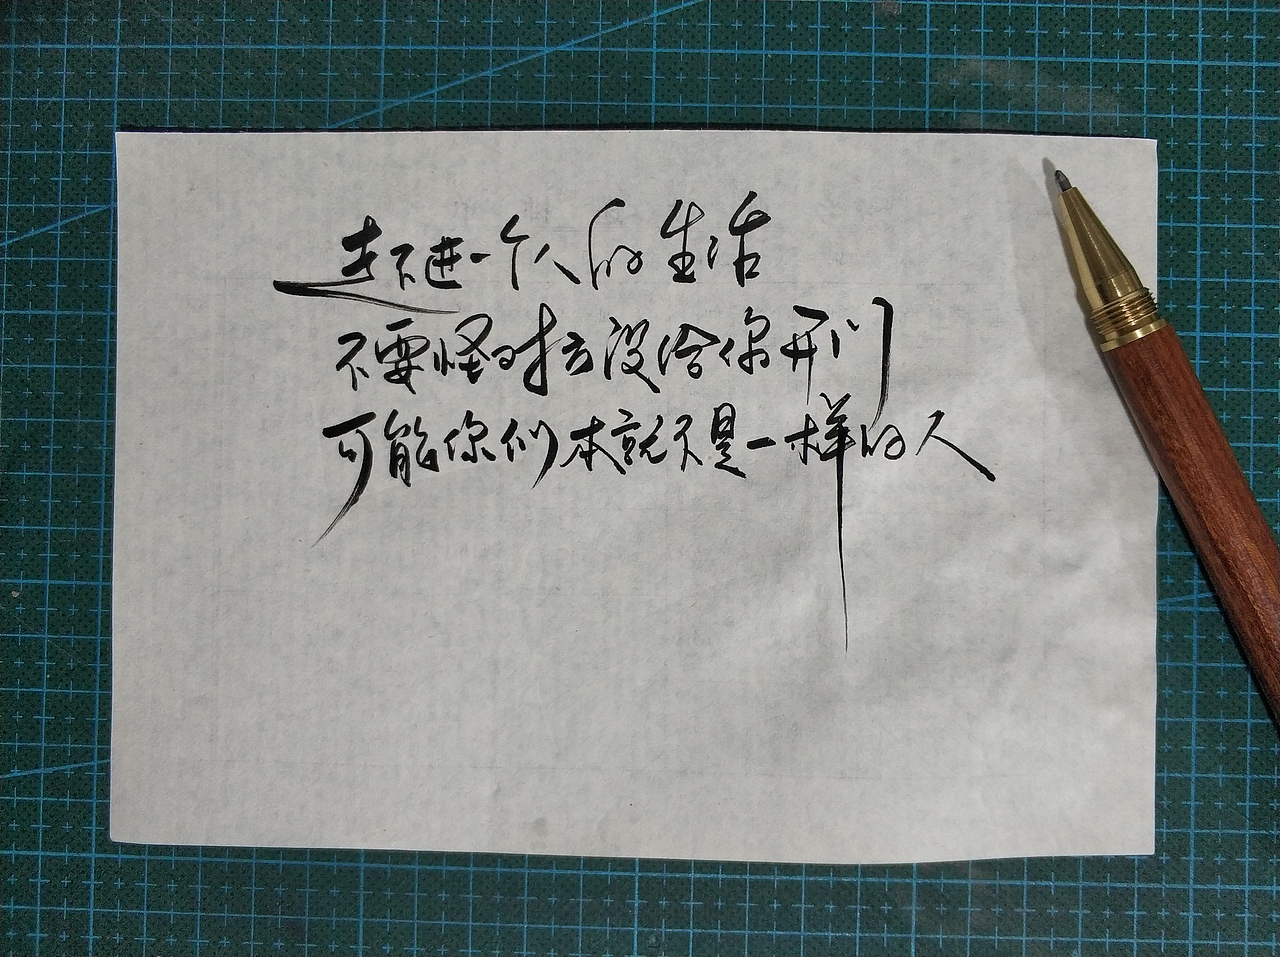 走不进一个人的生活
不要怪时去没给你开门
可能你们本就不是一样的人